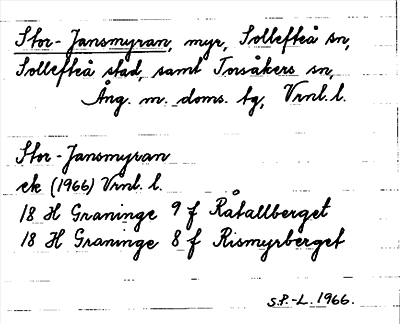 Stor-Jansmyran, myr, Sollefteå sn,
Sollefteå stad, samt Torsåkers sn,
Ång. m. doms. tg, Vrnl. l.
Stor-Jansmyran
ek (1966) Vrnl. l.
18 H Graninge 9 f Råtallberget
18 H Graninge 8 f Rismyrberget
S.P.-L. 1966.